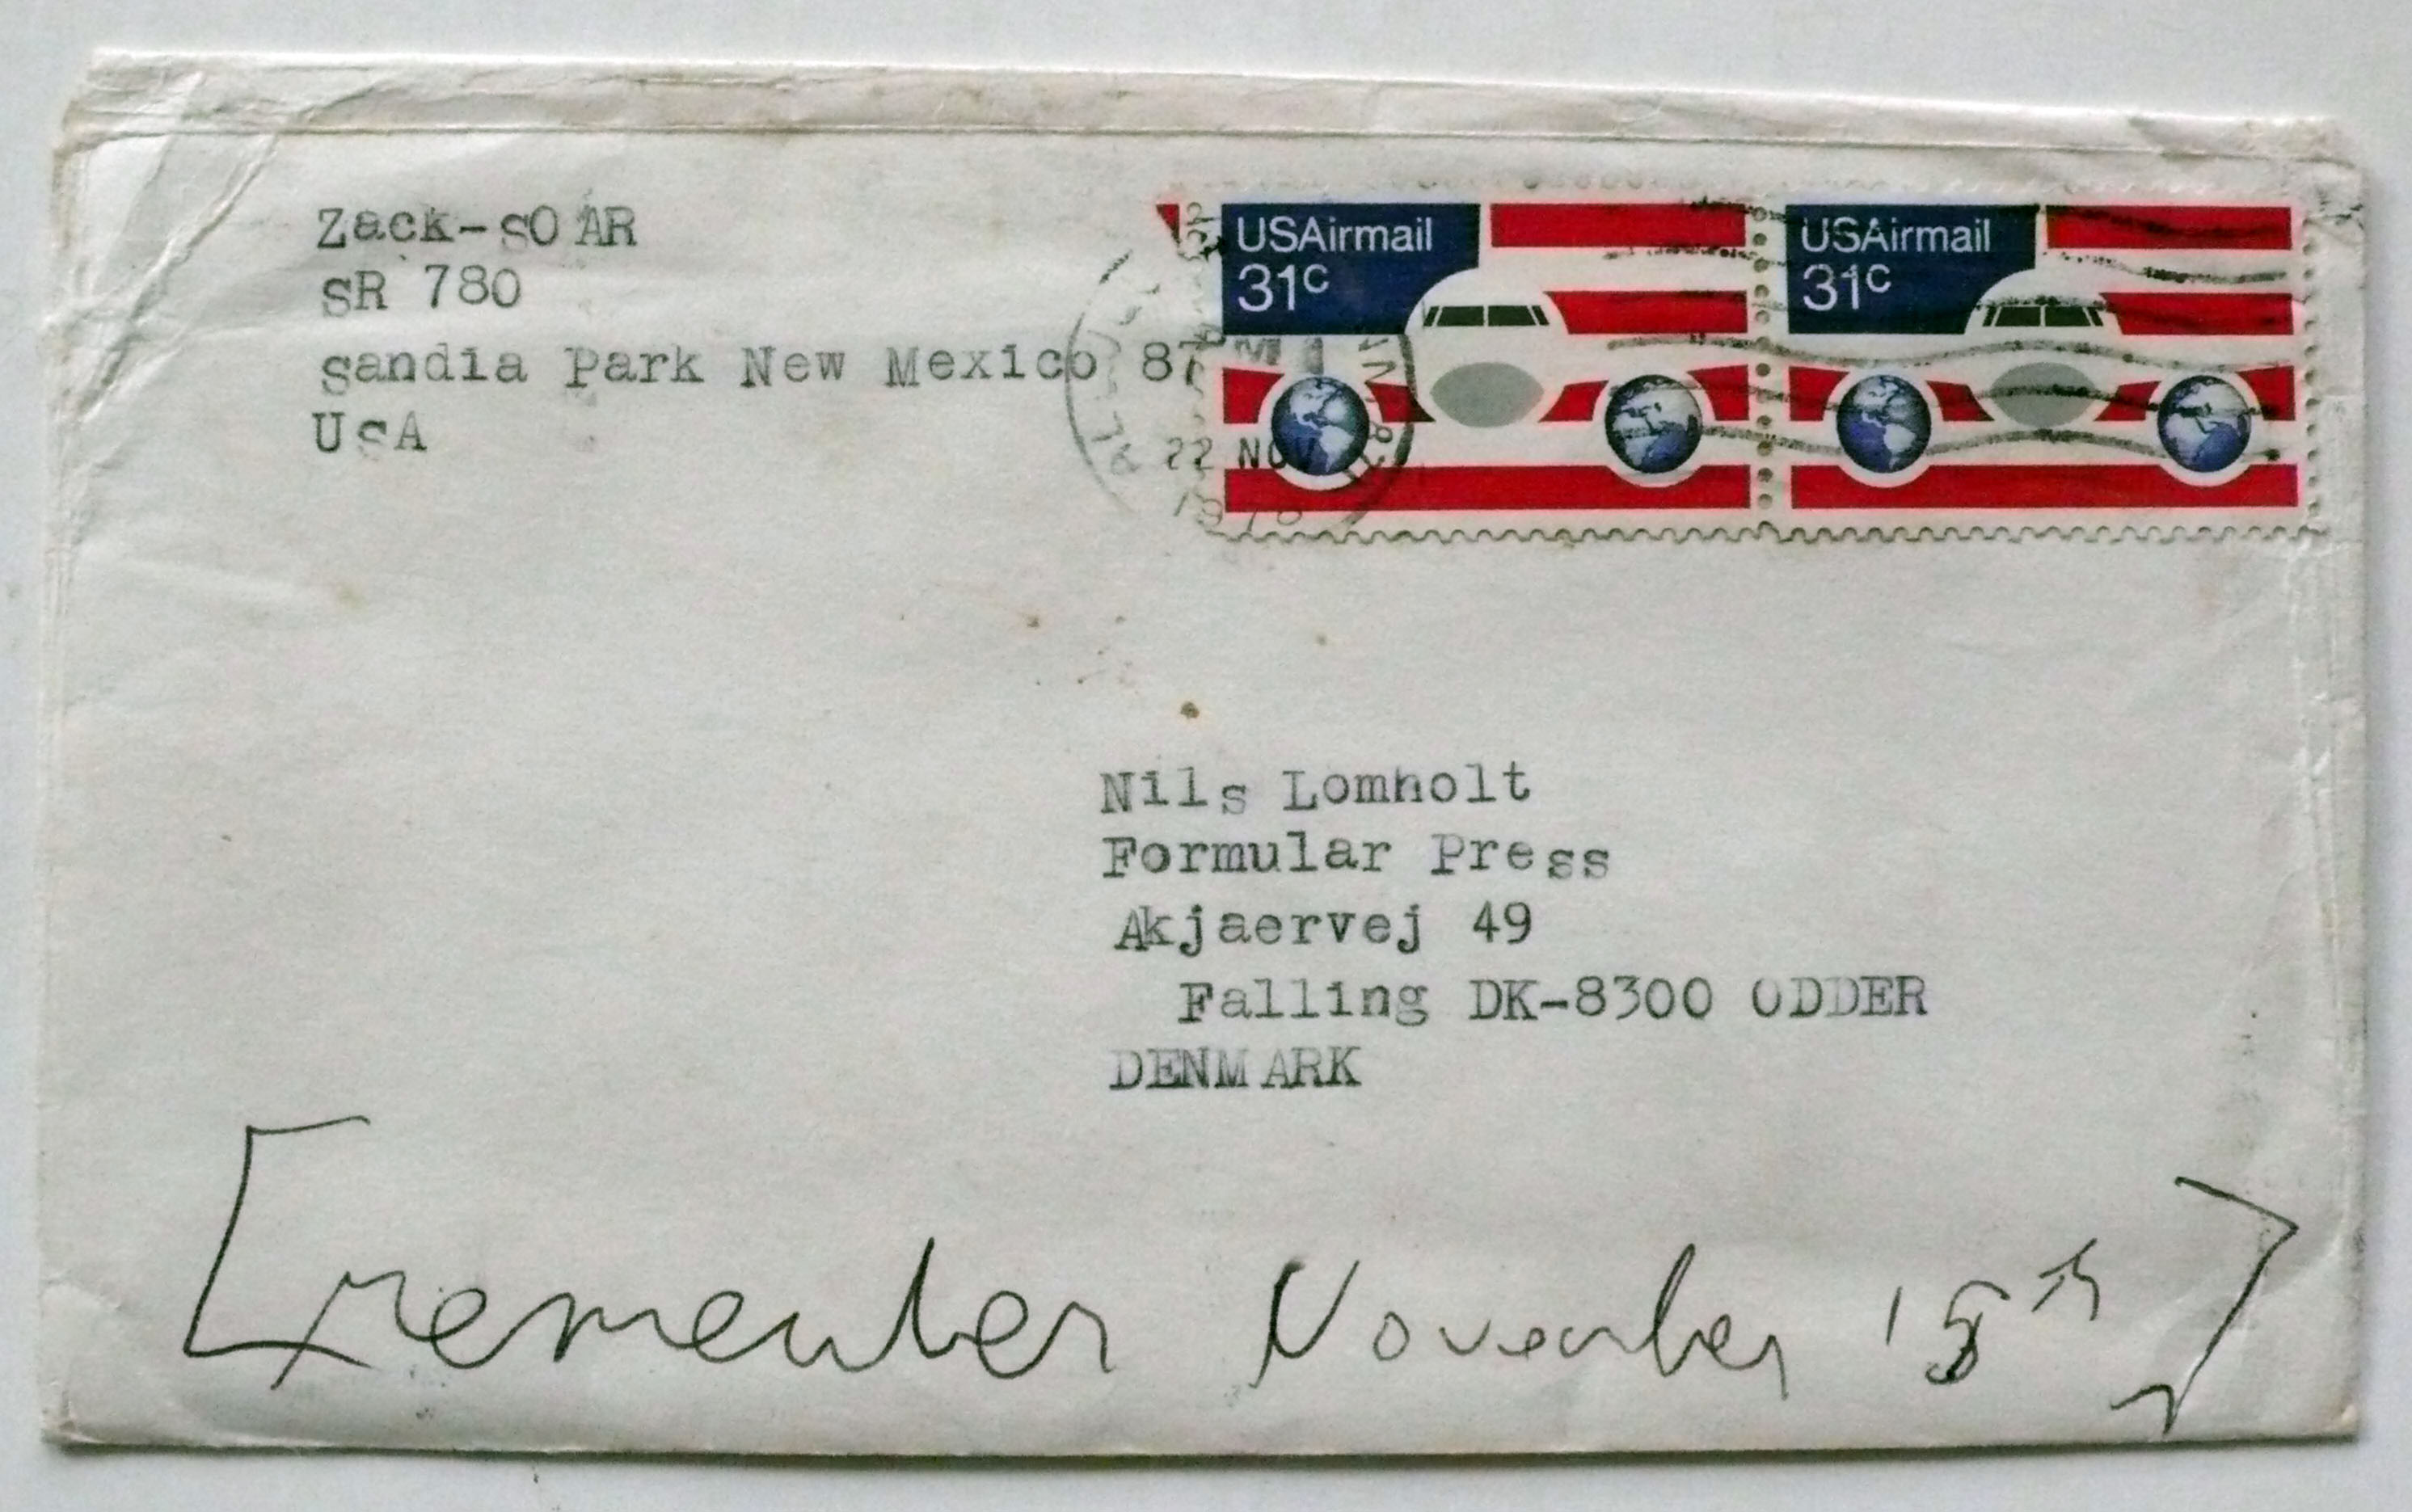 Zack-SOAR
SR 780
Sandia Park New Mexico 87
USA
USAirmail
31c
USAirmail
31c
PM
22 NOV
Nils Lomholt
Formular Press
Akjaervej 49
Falling DK-8300 ODDER
DENMARK
[remember November 15th]